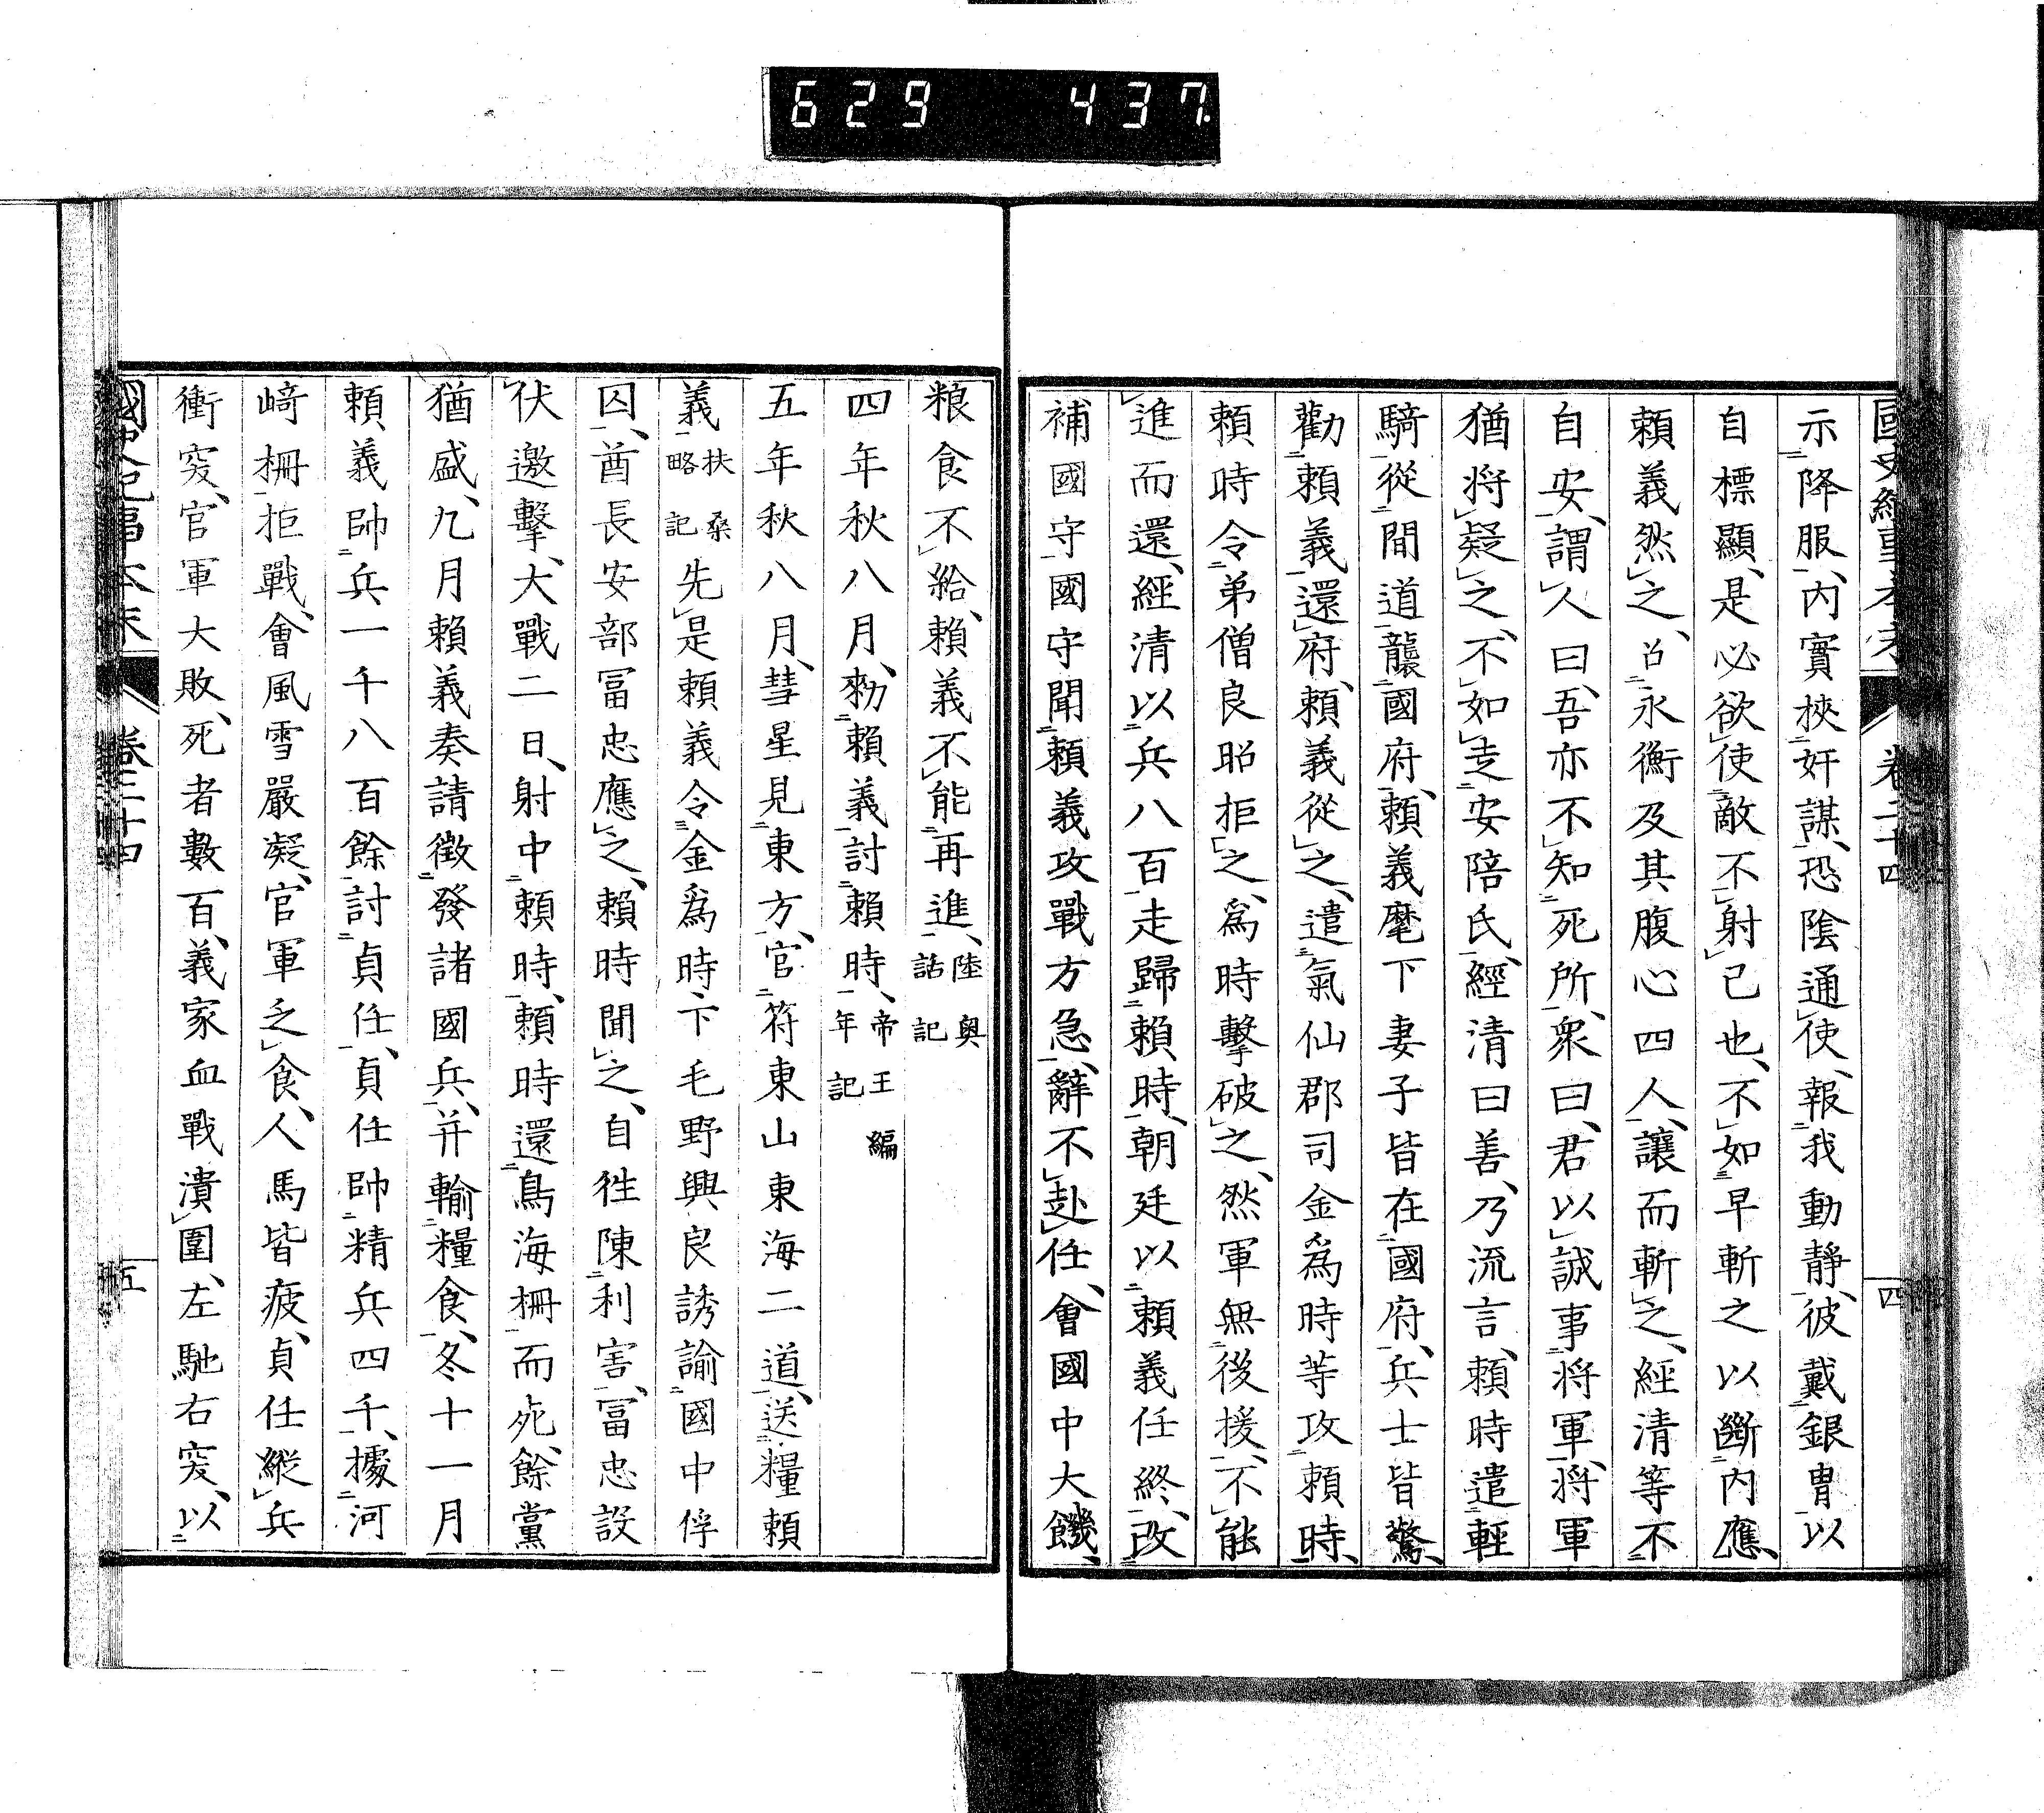 629 437
國史紀事本末 卷二十四 四
示降服、内實挾奸謀、恐陰通使、報我動靜、彼戴銀胄以
自標顯、是必欲使敵不射己也、不如早斬之以斷内應、
賴義然之、召永衡及其腹心四人、讓而斬之、經清等不
自安、謂人曰、吾亦不知死所、衆曰、君以誠事將軍、將軍
猶將疑之、不如走安陪氏、經清曰善、乃流言、賴時遣輕
騎從間道襲國府、賴義麾下妻子皆在國府、兵士皆驚、
勸賴義還府、賴義從之、遣氣仙郡司金爲時等攻賴時、
賴時令弟僧良昭拒之、爲時擊破之、然軍無後援、不能
進而還、經清以兵八百走歸賴時、朝廷以賴義任終、改
補國守、國守聞賴義攻戰方急、辭不赴任、會國中大饑、
粮食不給、賴義不能再進、陸奥話記
四年秋八月、勑賴義討賴時、帝王編年記
五年秋八月、彗星見東方、官符東山東海二道、送糧賴
義扶桑略記先是賴義令金爲時、下毛野興良誘諭國中俘
囚、酋長安部冨忠應之、賴時聞之、自徃陳利害、冨忠設
伏邀擊、大戰二日、射中賴時、賴時還鳥海柵而死、餘黨
猶盛、九月賴義奏請徵發諸國兵、幷輸糧食、冬十一月
賴義帥兵一千八百餘討貞任、貞任帥精兵四千、據河
﨑柵拒戰、會風雪嚴凝、官軍乏食、人馬皆疲、貞任縱兵
衝突、官軍大敗、死者數百、義家血戰潰圍、左馳右突、以
國史紀事本末 卷二十四 五